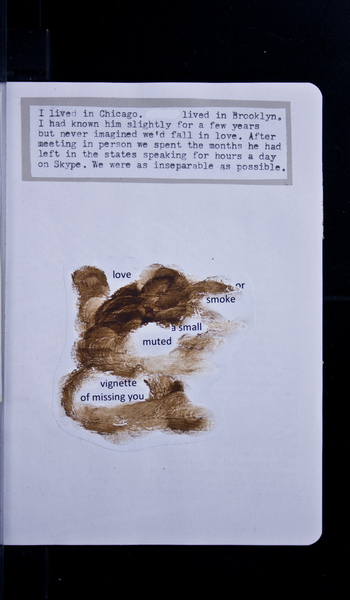 I lived in Chicago. lived in Brooklyn.
I had known him slightly for a few years
but never imagined we'd fall in love. After
meeting in person we spent the months he had
left in the states speaking for hours a day
on Skype. We were as inseparable as possible.
love
or
smoke
a small
muted
vignette
of missing you